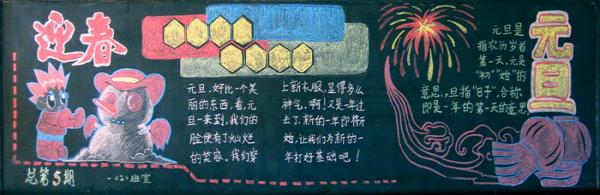 迎春
总第5期
一〈2〉班宣
元旦,好比一个美
丽的东西,看,元
旦一来到,我们的
脸便有了灿烂
的笑容,我们穿
上新衣服,显得多么
神气。啊!又是一年过
去了,新的一年即将开
始,让我们为新的一
年打好基础吧!
元旦是
指农历岁首
第一天。元是
“初”“始”的
意思,旦指“日子”,合称
即是一年的第一天的意思
元旦